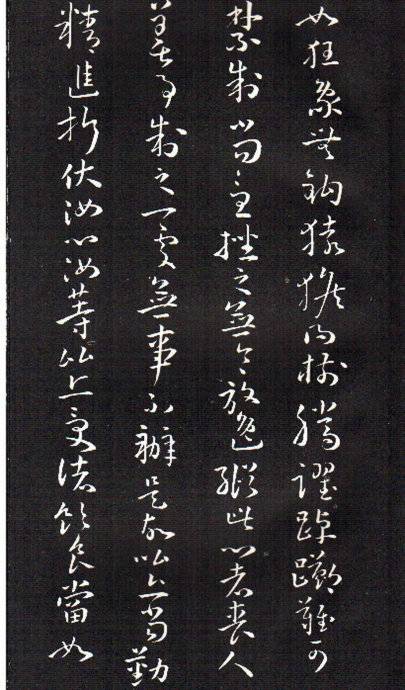 如狂象無鉤猿猴得樹騰躍踔躑難可
禁制當急挫之無令放逸縱此心者喪人
善事制之一處無事不辦是故比丘當勤
精進折伏汝心汝等比丘受諸飲食當如